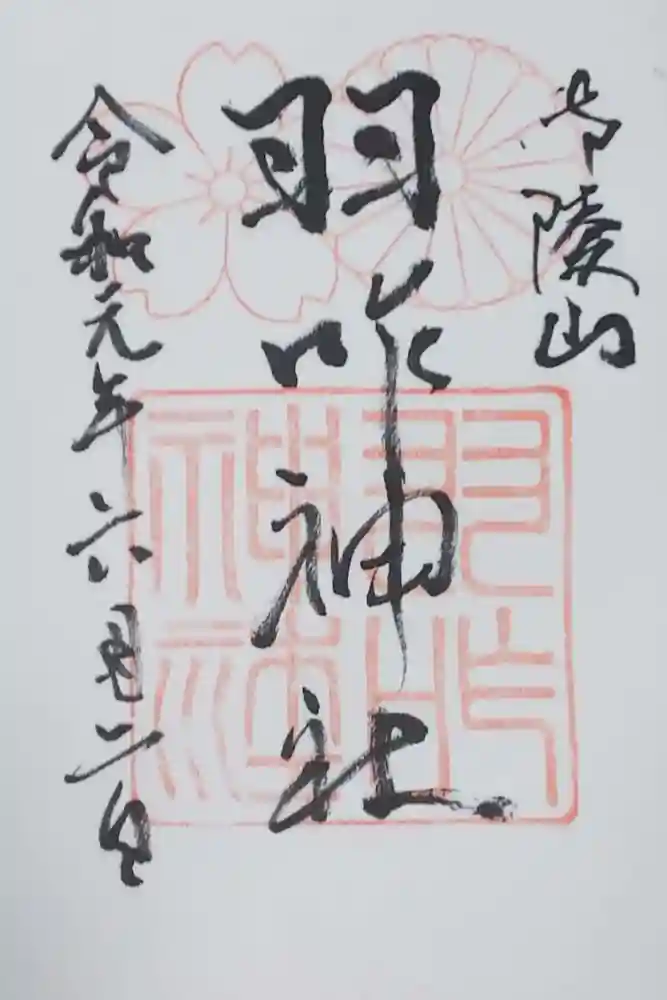 御陵山
羽咋神社
令和元年六月二日
羽咋
神社